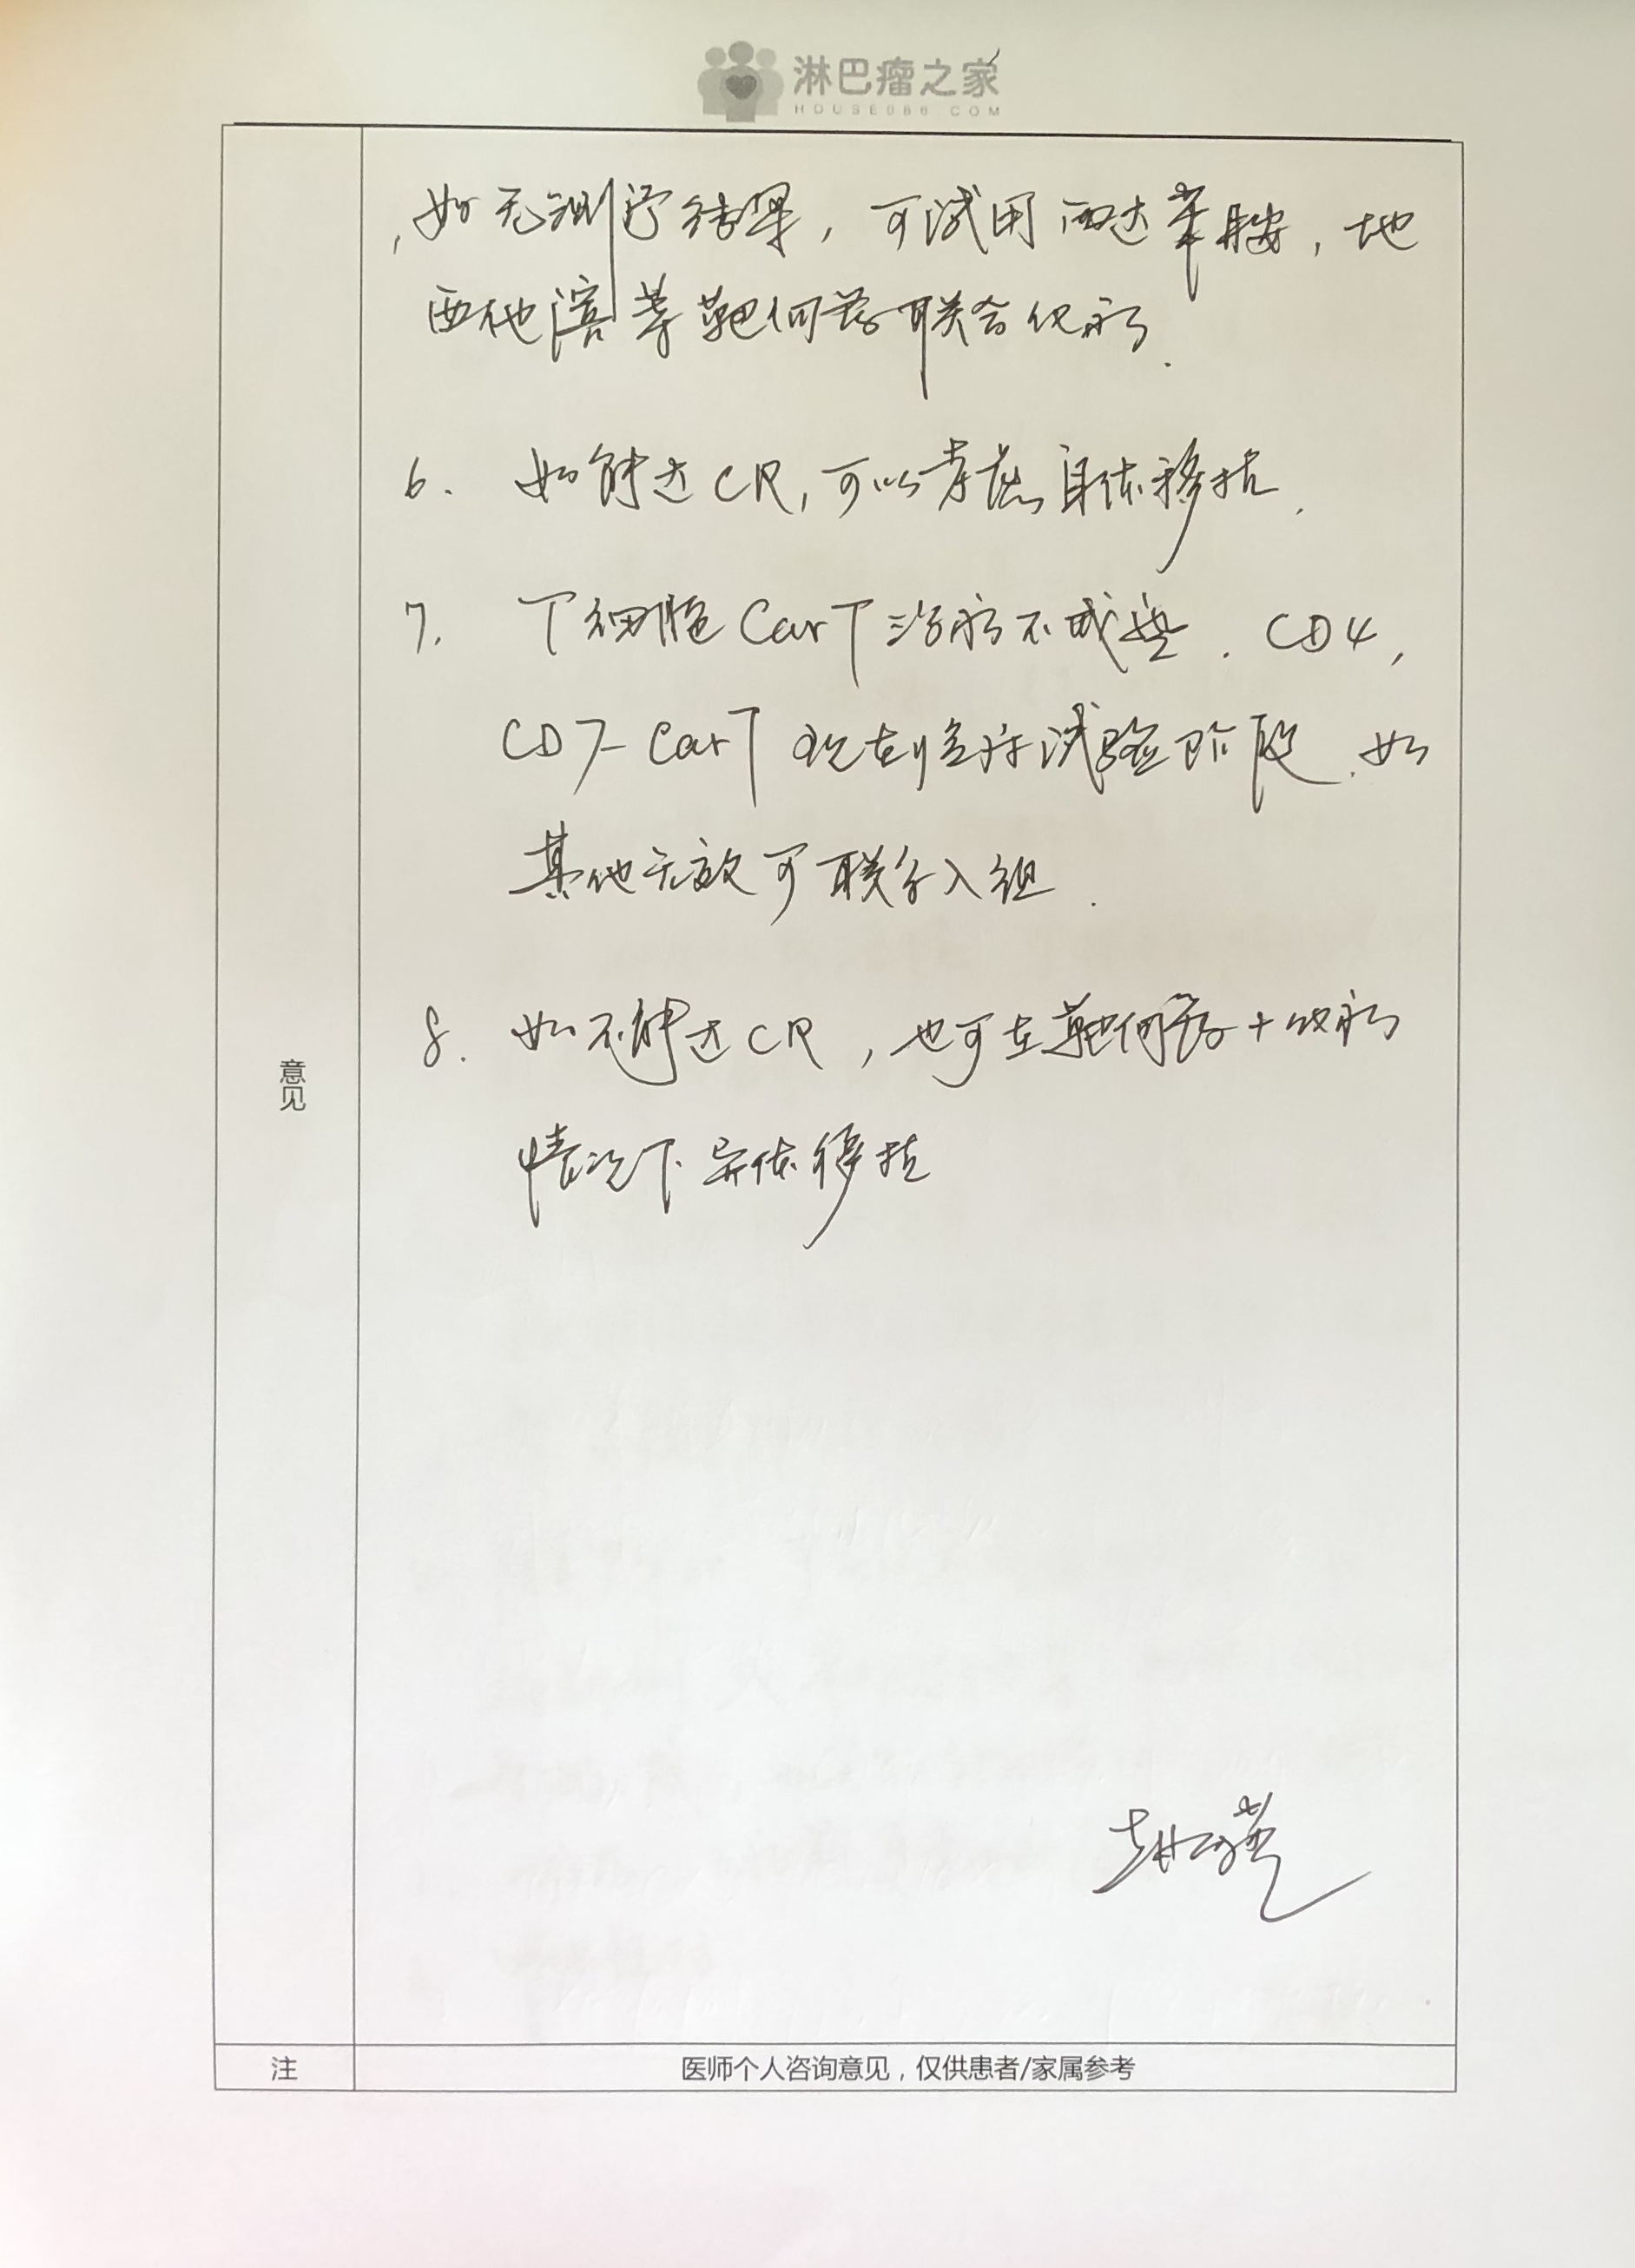 淋巴瘤之家
HOUSE086.COM
如无测序结果，可试用西达苯胺，地
西他滨等靶向药联合化疗.
6. 如能达CR，可以考虑自体移植.
7. T细胞CarT治疗不成熟. CD4,
CD7-CarT现在临床试验阶段.如
其他无效可联系入组.
8. 如不能达CR，也可在靶向药+化疗
情况下异体移植
意见
注
医师个人咨询意见，仅供患者/家属参考